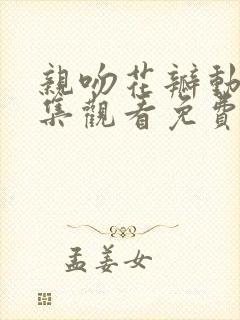 親吻花瓣動
集觀看免費
孟姜女